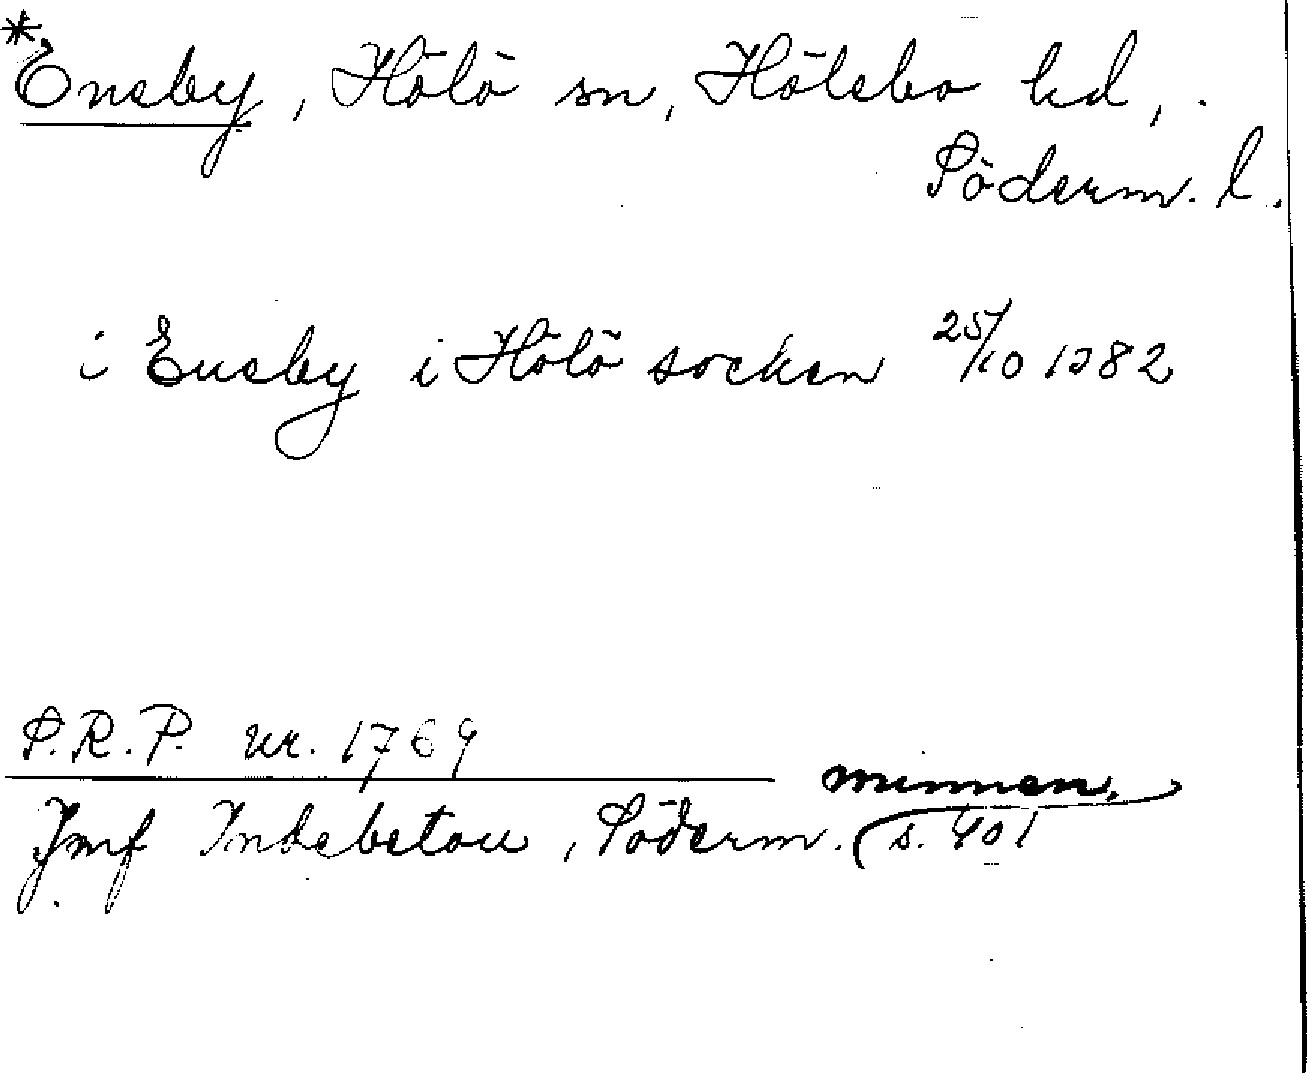 *Ensby, Hölö sn, Hölebo hd,
Söderm. l.
i Ensby i Hölö socken 25/10 1382
S.R.P. nr. 1769
Jmf Indebetou, Söderm. minnen.
s. 401